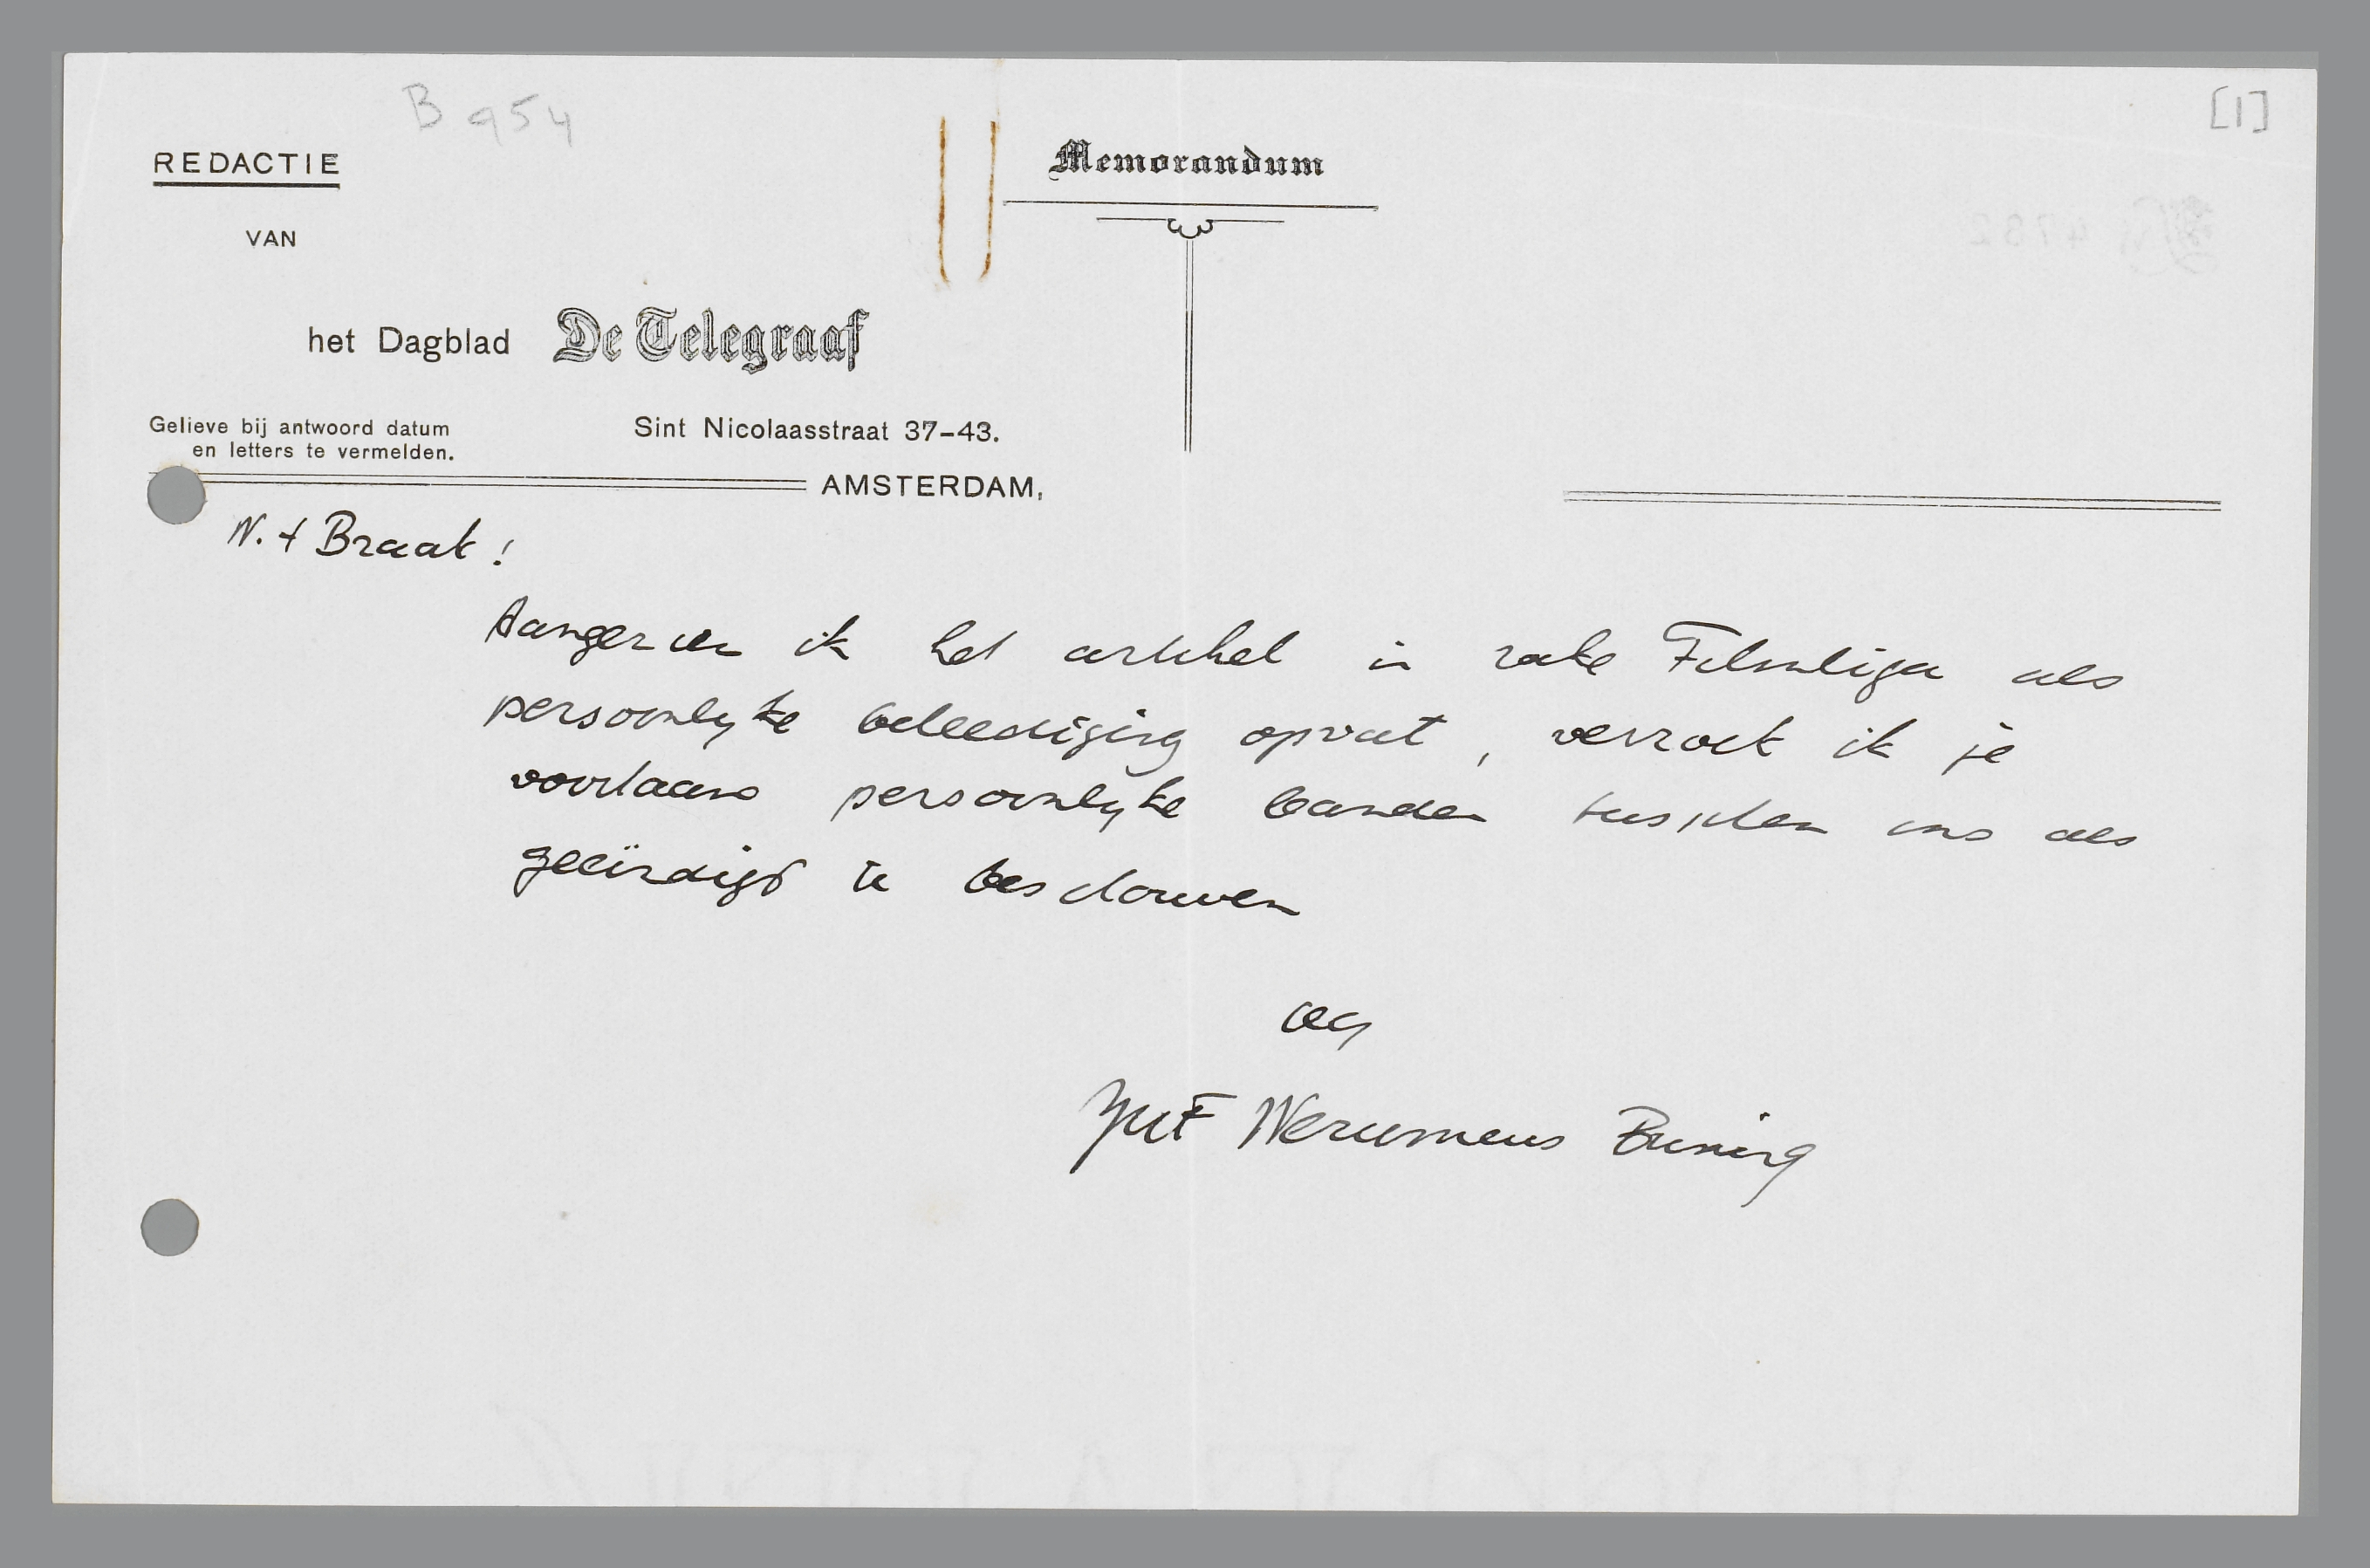 B 954
[1]
REDACTIE
VAN
het Dagblad De Telegraaf
Gelieve bij antwoord datum
en letters te vermelden.
Sint Nicolaasstraat 37-43.
AMSTERDAM,
Memorandum
W. t Braak!
Aangezien ik het artikel in zake Filmliga als
persoonlyke beleediging opvat, verzoek ik je
voortaan persoonlyke banden tusschen ons als
geëindigd te beschouwen
JWF Werumeus Buning